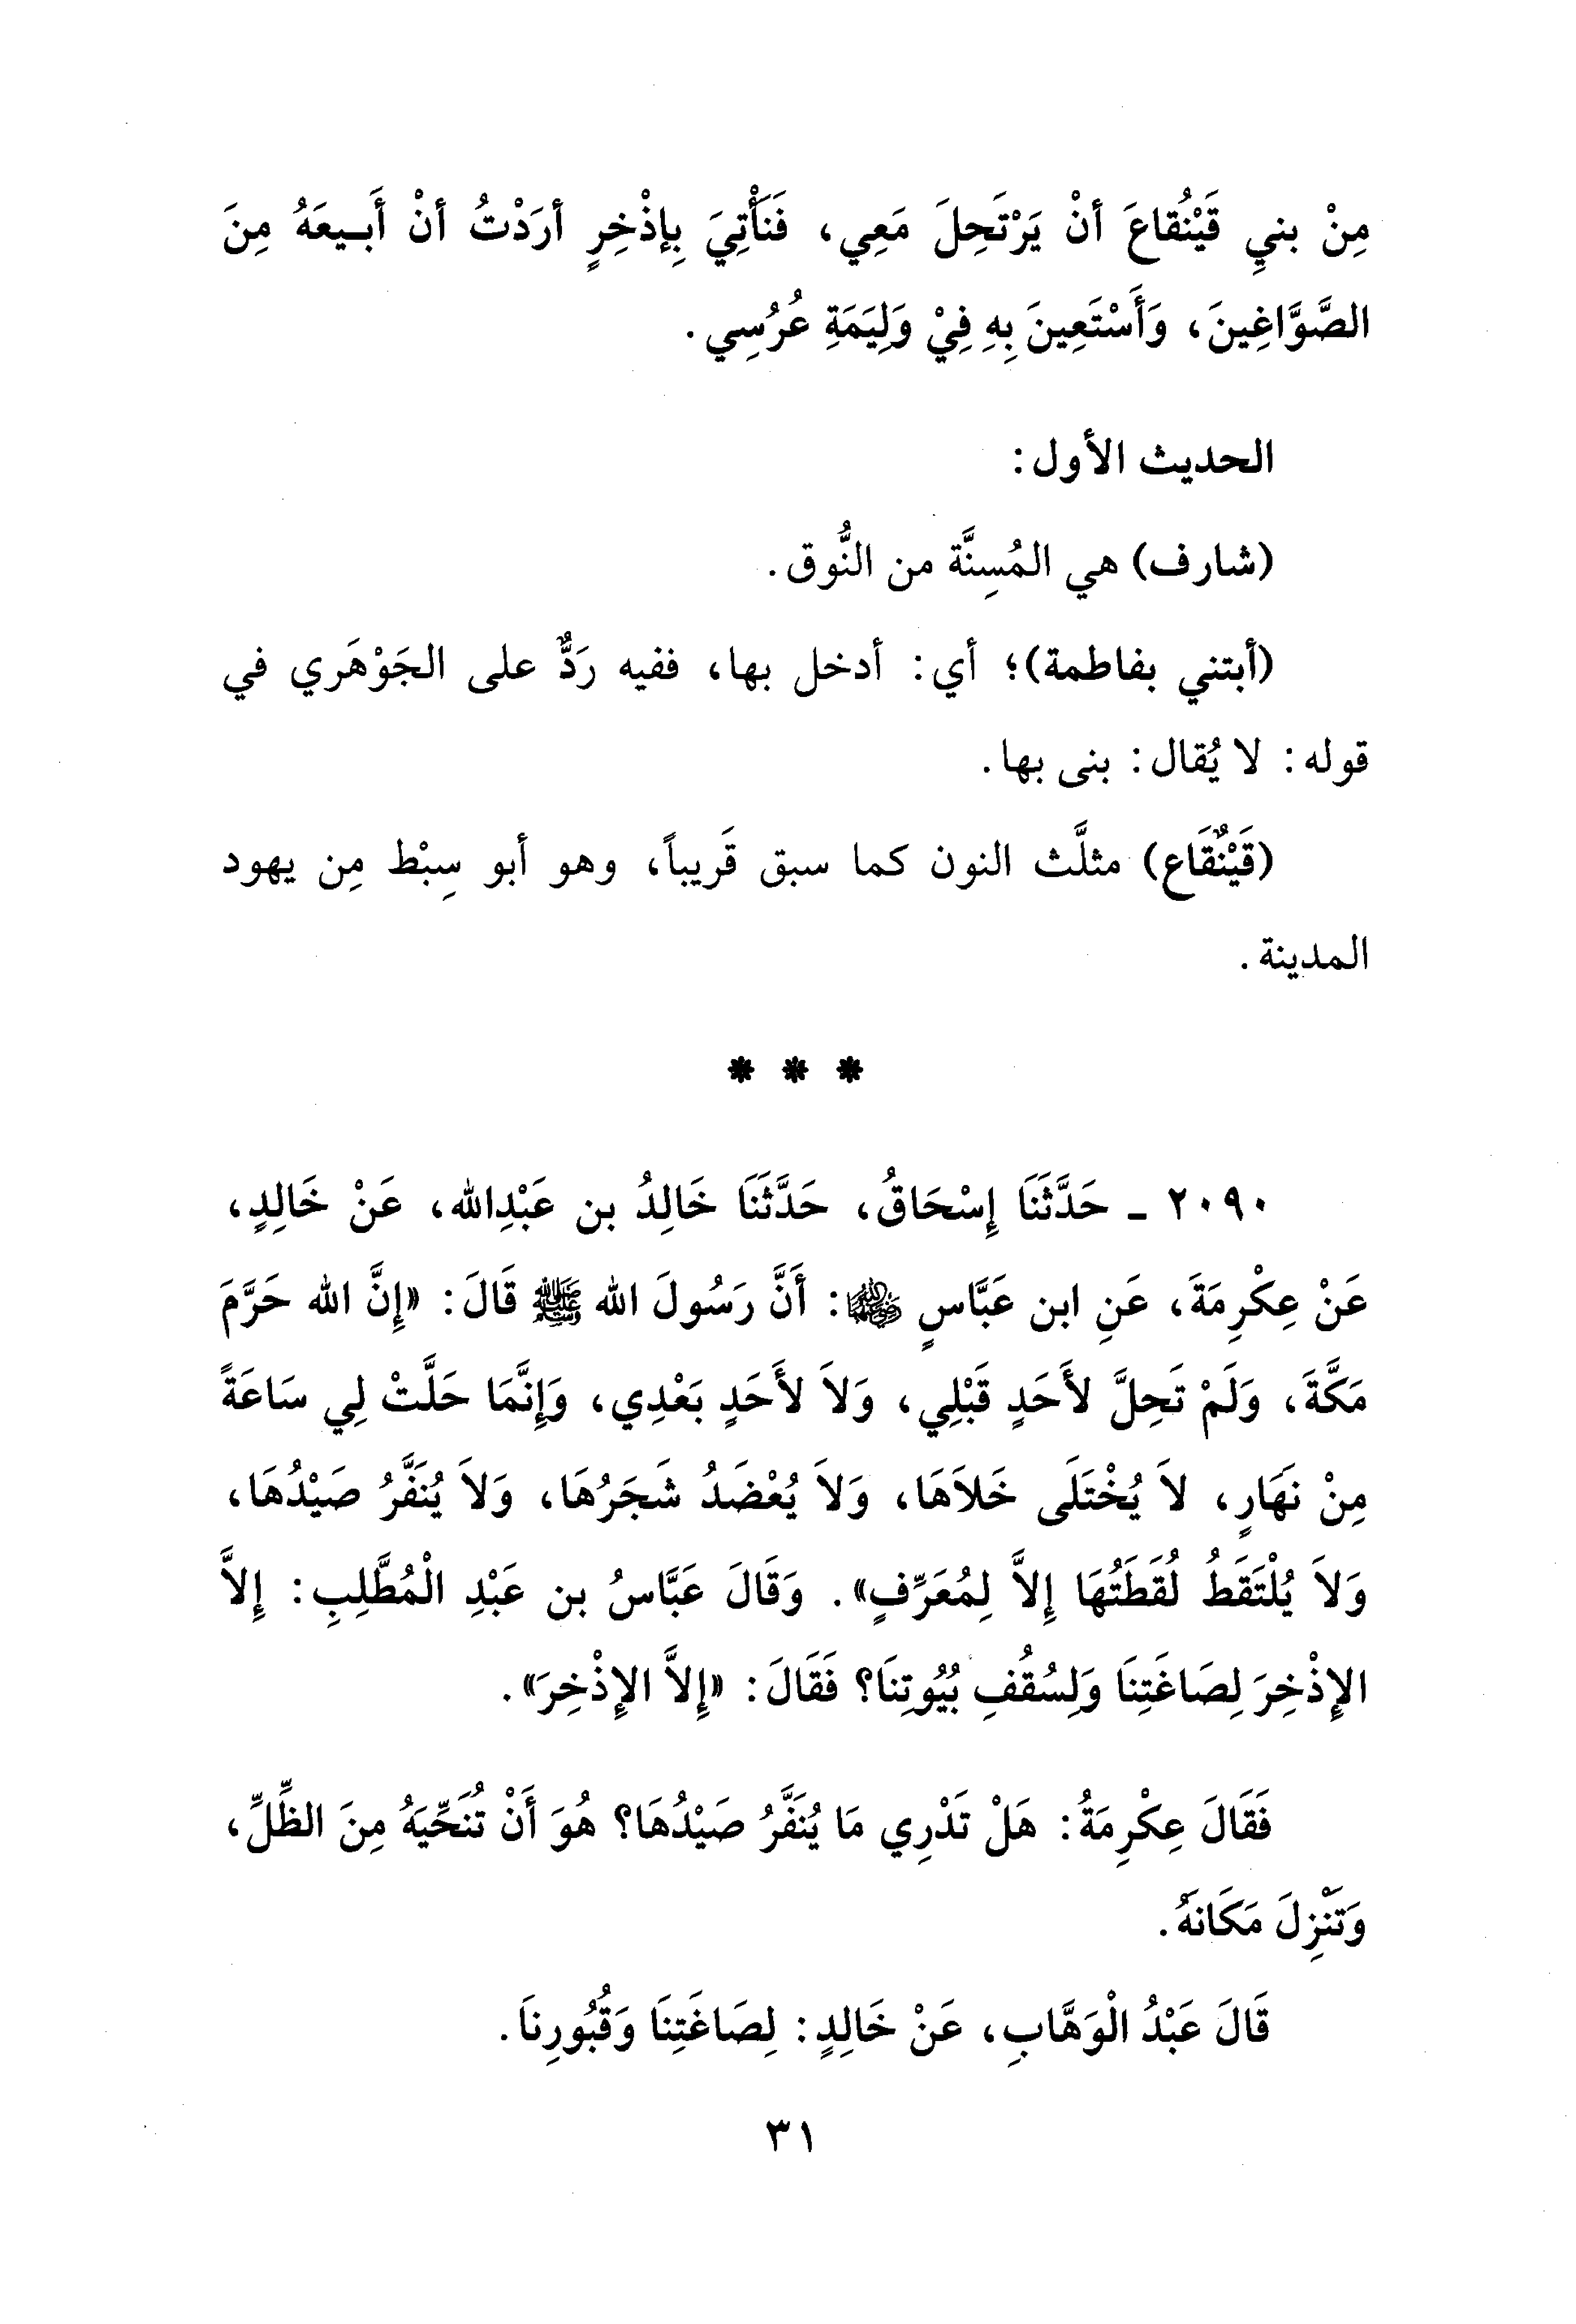 مِنْ بنيِ قَيْنُقاعَ أنْ يَرْتَحِلَ مَعِي، فَنَأْتِيَ بِإذْخِرٍ أرَدْتُ أنْ أَبـيعَهُ مِنَ
الصَّوَّاغِينَ، وَأَسْتَعِينَ بِهِ فِيْ وَلِيَمَةِ عُرُسِي.
الحديث الأول:
(شارف) هي المُسِنَّة من النُّوق.
(أبتني بفاطمة)؛ أي: أدخل بها، ففيه رَدٌّ على الجَوْهَري في
قوله: لا يُقال: بنى بها.
(قَيْنُقَاع) مثلَّث النون كما سبق قَريباً، وهو أبو سِبْط مِن يهود
المدينة.
* * *
٢٠٩٠ ـ حَدَّثَنَا إِسْحَاقُ، حَدَّثَنَا خَالِدُ بن عَبْدِالله، عَنْ خَالِدٍ،
عَنْ عِكْرِمَةَ، عَنِ ابن عَبَّاسٍ ﵁: أَنَّ رَسُولَ الله ﷺ قَالَ: «إِنَّ الله حَرَّمَ
مَكَّةَ، وَلَمْ تَحِلَّ لأَحَدٍ قَبْلِي، وَلاَ لأَحَدٍ بَعْدِي، وَإِنَّمَا حَلَّتْ لِي سَاعَةً
مِنْ نَهَارٍ، لاَ يُخْتَلَى خَلاَهَا، وَلاَ يُعْضَدُ شَجَرُهَا، وَلاَ يُنَفَّرُ صَيْدُهَا،
وَلاَ يُلْتَقَطُ لُقَطَتُهَا إِلاَّ لِمُعَرِّفٍ». وَقَالَ عَبَّاسُ بن عَبْدِ الْمُطَّلِبِ: إِلاَّ
الإِذْخِرَ لِصَاغَتِنَا وَلِسُقُفِ بُيُوتِنَا؟ فَقَالَ: «إِلاَّ الإِذْخِرَ».
فَقَالَ عِكْرِمَةُ: هَلْ تَدْرِي مَا يُنَفَّرُ صَيْدُهَا؟ هُوَ أَنْ تُنَحِّيَهُ مِنَ الظِّلِّ،
وَتَنْزِلَ مَكَانَهُ.
قَالَ عَبْدُ الْوَهَّابِ، عَنْ خَالِدٍ: لِصَاغَتِنَا وَقُبُورِنَا.
٣١